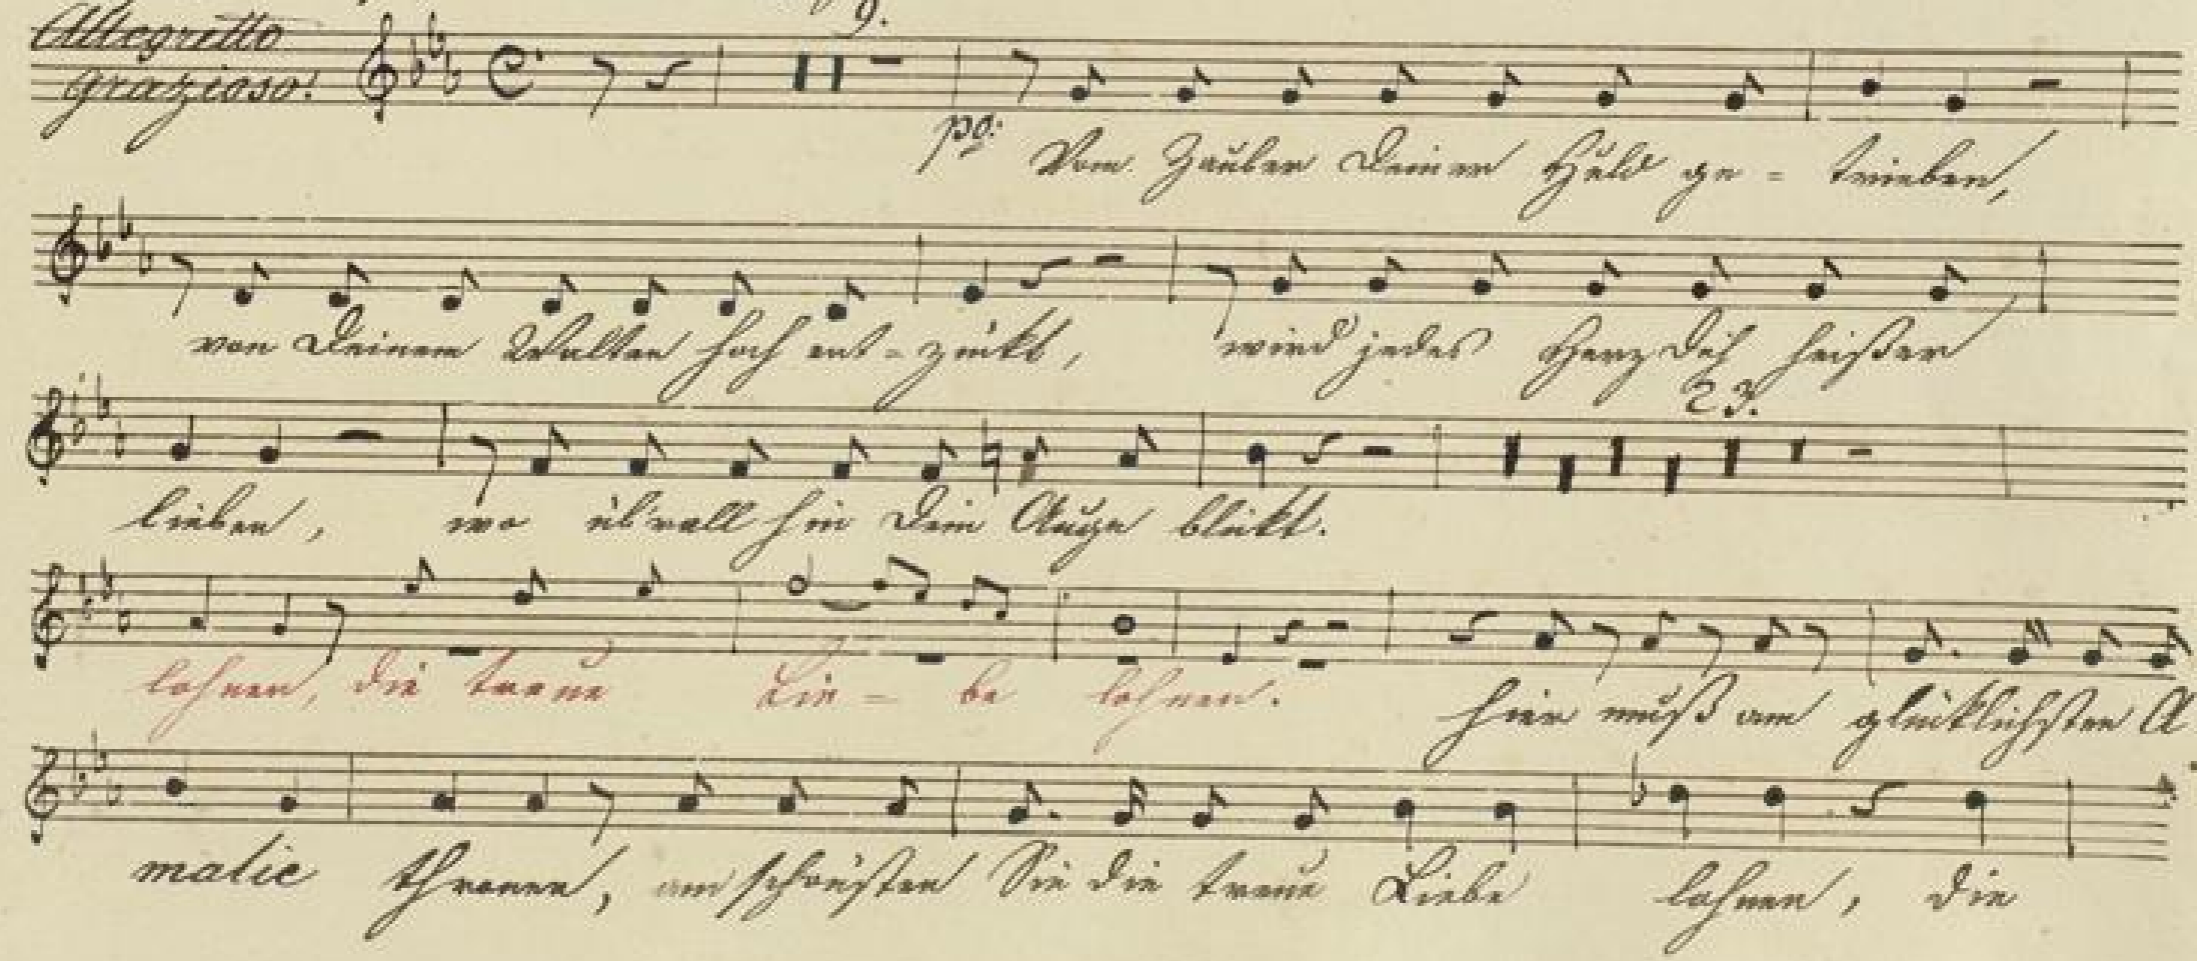 Allegretto 9.
grazioso!
po: Vom Zauber Deiner Huld ge = trieben,
von Deinem Walten hoch ent = zückt, wird jedes Herz Dich heißer
23.
lieben, wo üb'rall hin Dein Auge blickt.
lohnen, die treue Lie = be lohnen. hier muß am glücklichsten A
malie thronen, am schönsten Sie die treue Liebe lohnen, die